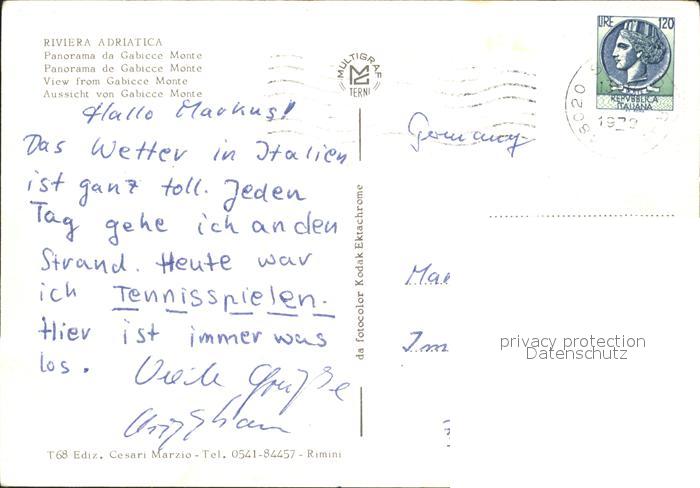 RIVIERA ADRIATICA
Panorama da Gabicce Monte
Panorama de Gabicce Monte
View from Gabicce Monte
Aussicht von Gabicce Monte
MULTIGRAF
TERNI
LIRE 120
REPVBBLICA
ITALIANA
Hallo Markus!
Das Wetter in Italien
ist ganz toll. Jeden
Tag gehe ich an den
Strand. Heute war
ich Tennisspielen.
Hier ist immer was
los.
Viele Grüße
da fotocolor Kodak Ektachrome
Germany
Ma
Im
privacy protection
Datenschutz
T68 Ediz. Cesari Marzio - Tel. 0541-84457 - Rimini